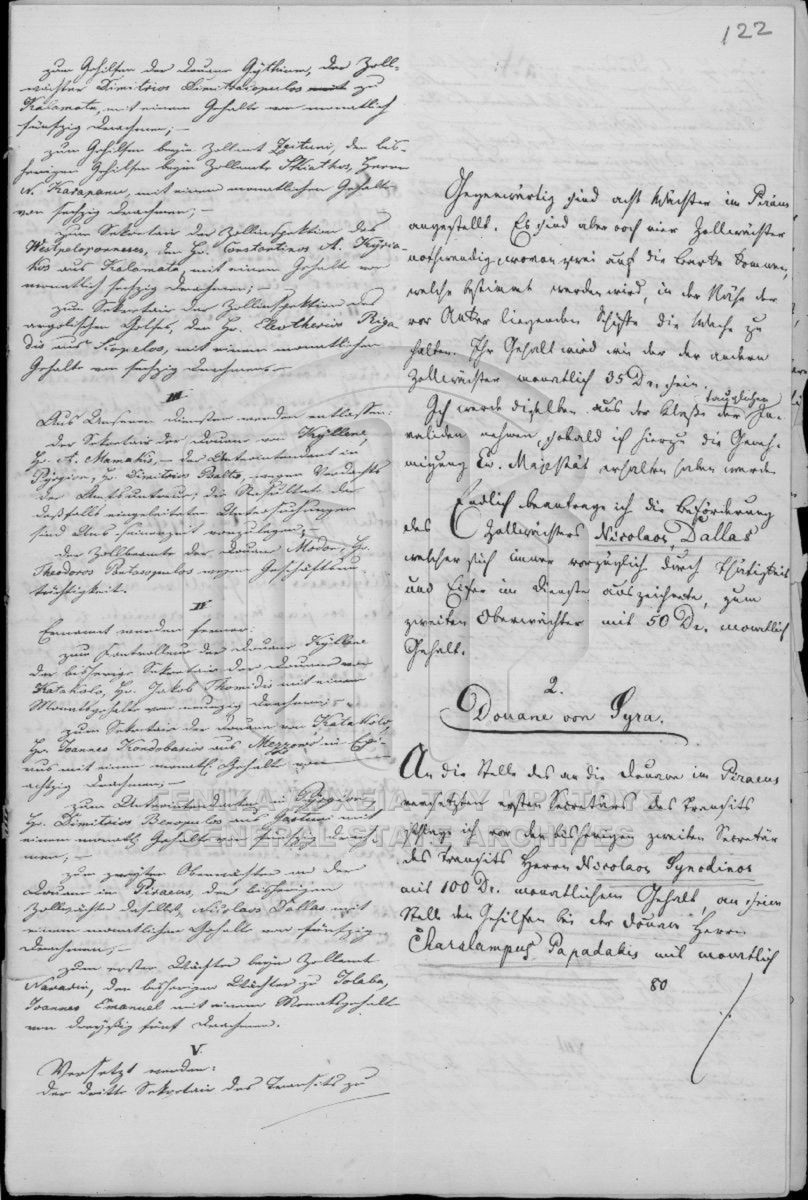 122
zum Gehilfen der Douane Gythium, der Zoll-
wächter Dimitrios Dimitracopulos zu
Kalamata, mit einem Gehalte von monatlich
fünfzig Drachmen; –
zum Gehilfen beym Zollamt Zeituni, den bis-
herigen Gehilfen beym Zollamte Skiathos, Herrn
N. Karapanu, mit einem monatlichen Gehalte
von sechzig Drachmen; –
zum Sekretair der Zollinspektion des
Westpeloponneses, den Hr. Constantinos A. Kyria-
kos aus Kalamata, mit einem Gehalt von
monatlich sechzig Drachmen; –
zum Sekretair der Zollinspektion des
argolischen Golfes, den Hr. Eleutherios Riga
dis aus Skopelos, mit einem monatlichen
Gehalte von sechzig Drachmen. –
III
Aus Unseren Diensten werden entlassen:
der Sekretair der Douane von Kyllene,
Hr. A. Mamakis, – der Unterintendant in
Pyrgion, Hr. Dimitrios Balta, wegen Verdachts
der Amtsuntreue; die Resultate der
deßfalls eingeleiteten Untersuchungen
sind Uns seinerzeit vorzulegen; –
der Zollbeamte der Douane Modon, Hr.
Theodoros wegen Geschäftsun-
tüchtigkeit.
IV
Ernannt werden ferner:
zum Kontrolleur der Douane Kyllene
der bisherige Sekretair der Douane von
Katakolo, Hr. Jakob Thomidis mit einem
Monatsgehalte von neunzig Drachmen; –
zum Sekretair der Douane von Katakolo,
Hr. Joannes Kondobasis aus Mezzovo in Epi-
rus mit einem monatl. Gehalt von
achtzig Drachmen; –
zum Unterintendanten in Pyrgion,
Hr. Dimitrios aus Gastuni mit
einem monatl. Gehalte von fünfzig Drach-
men; –
zum zweyten Oberwächter an der
Douane im Piraeus, der bisherigen
Zollwächter daselbst, Nicolaos Dallas mit
einem monatlichen Gehalte von fünfzig
Drachmen; –
zum ersten Wächter beym Zollamt
Navarin, den bisherigen Wächter zu
Joannes Emanuel mit einem Monatsgehalte
von dreyßig fünf Drachmen.
V.
Versetzt werden:
der dritte Sekretair des Transits zu
Gegenwärtig sind acht Wächter im Piräus
angestellt. Es sind aber noch vier Zollwächter
nothwendig, wovon zwei auf die Barke kommen,
welche bestimmt werden wird, in der Nähe der
vor Anker liegenden Schiffe die Wache zu
halten. Ihr Gehalt wird wie der der andern
Zollwächter monatlich 35 Dr. sein.
Ich werde dieselben aus der Klasse der tauglichen In-
validen nehmen, sobald ich hierzu die Geneh-
migung Eu. Majestät erhalten haben werde.
Endlich beantrage ich die Beförderung
des Zollwächters Nicolaos Dallas
welcher sich immer vorzüglich durch Thätigkeit
und Eifer im Dienste auszeichnete, zum
zweiten Oberwächter mit 50 Dr. monatlich
Gehalt.
2.
Douane von Syra.
An die Stelle des an die Douane im Piraeus
versetzten ersten Secretärs des Transits
schlage ich vor den bisherigen zweiten Secretär
des Transits Herrn Nicolaos Synodinos
mit 100 Dr. monatlichem Gehalt, an seine
Stelle den Gehilfen bei der Douane Herrn
Charalampus Papadakis mit monatlich
80
ΓΕΝΙΚΑ ΑΡΧΕΙΑ ΤΟΥ ΚΡΑΤΟΥΣ
GENERAL STATE ARCHIVES